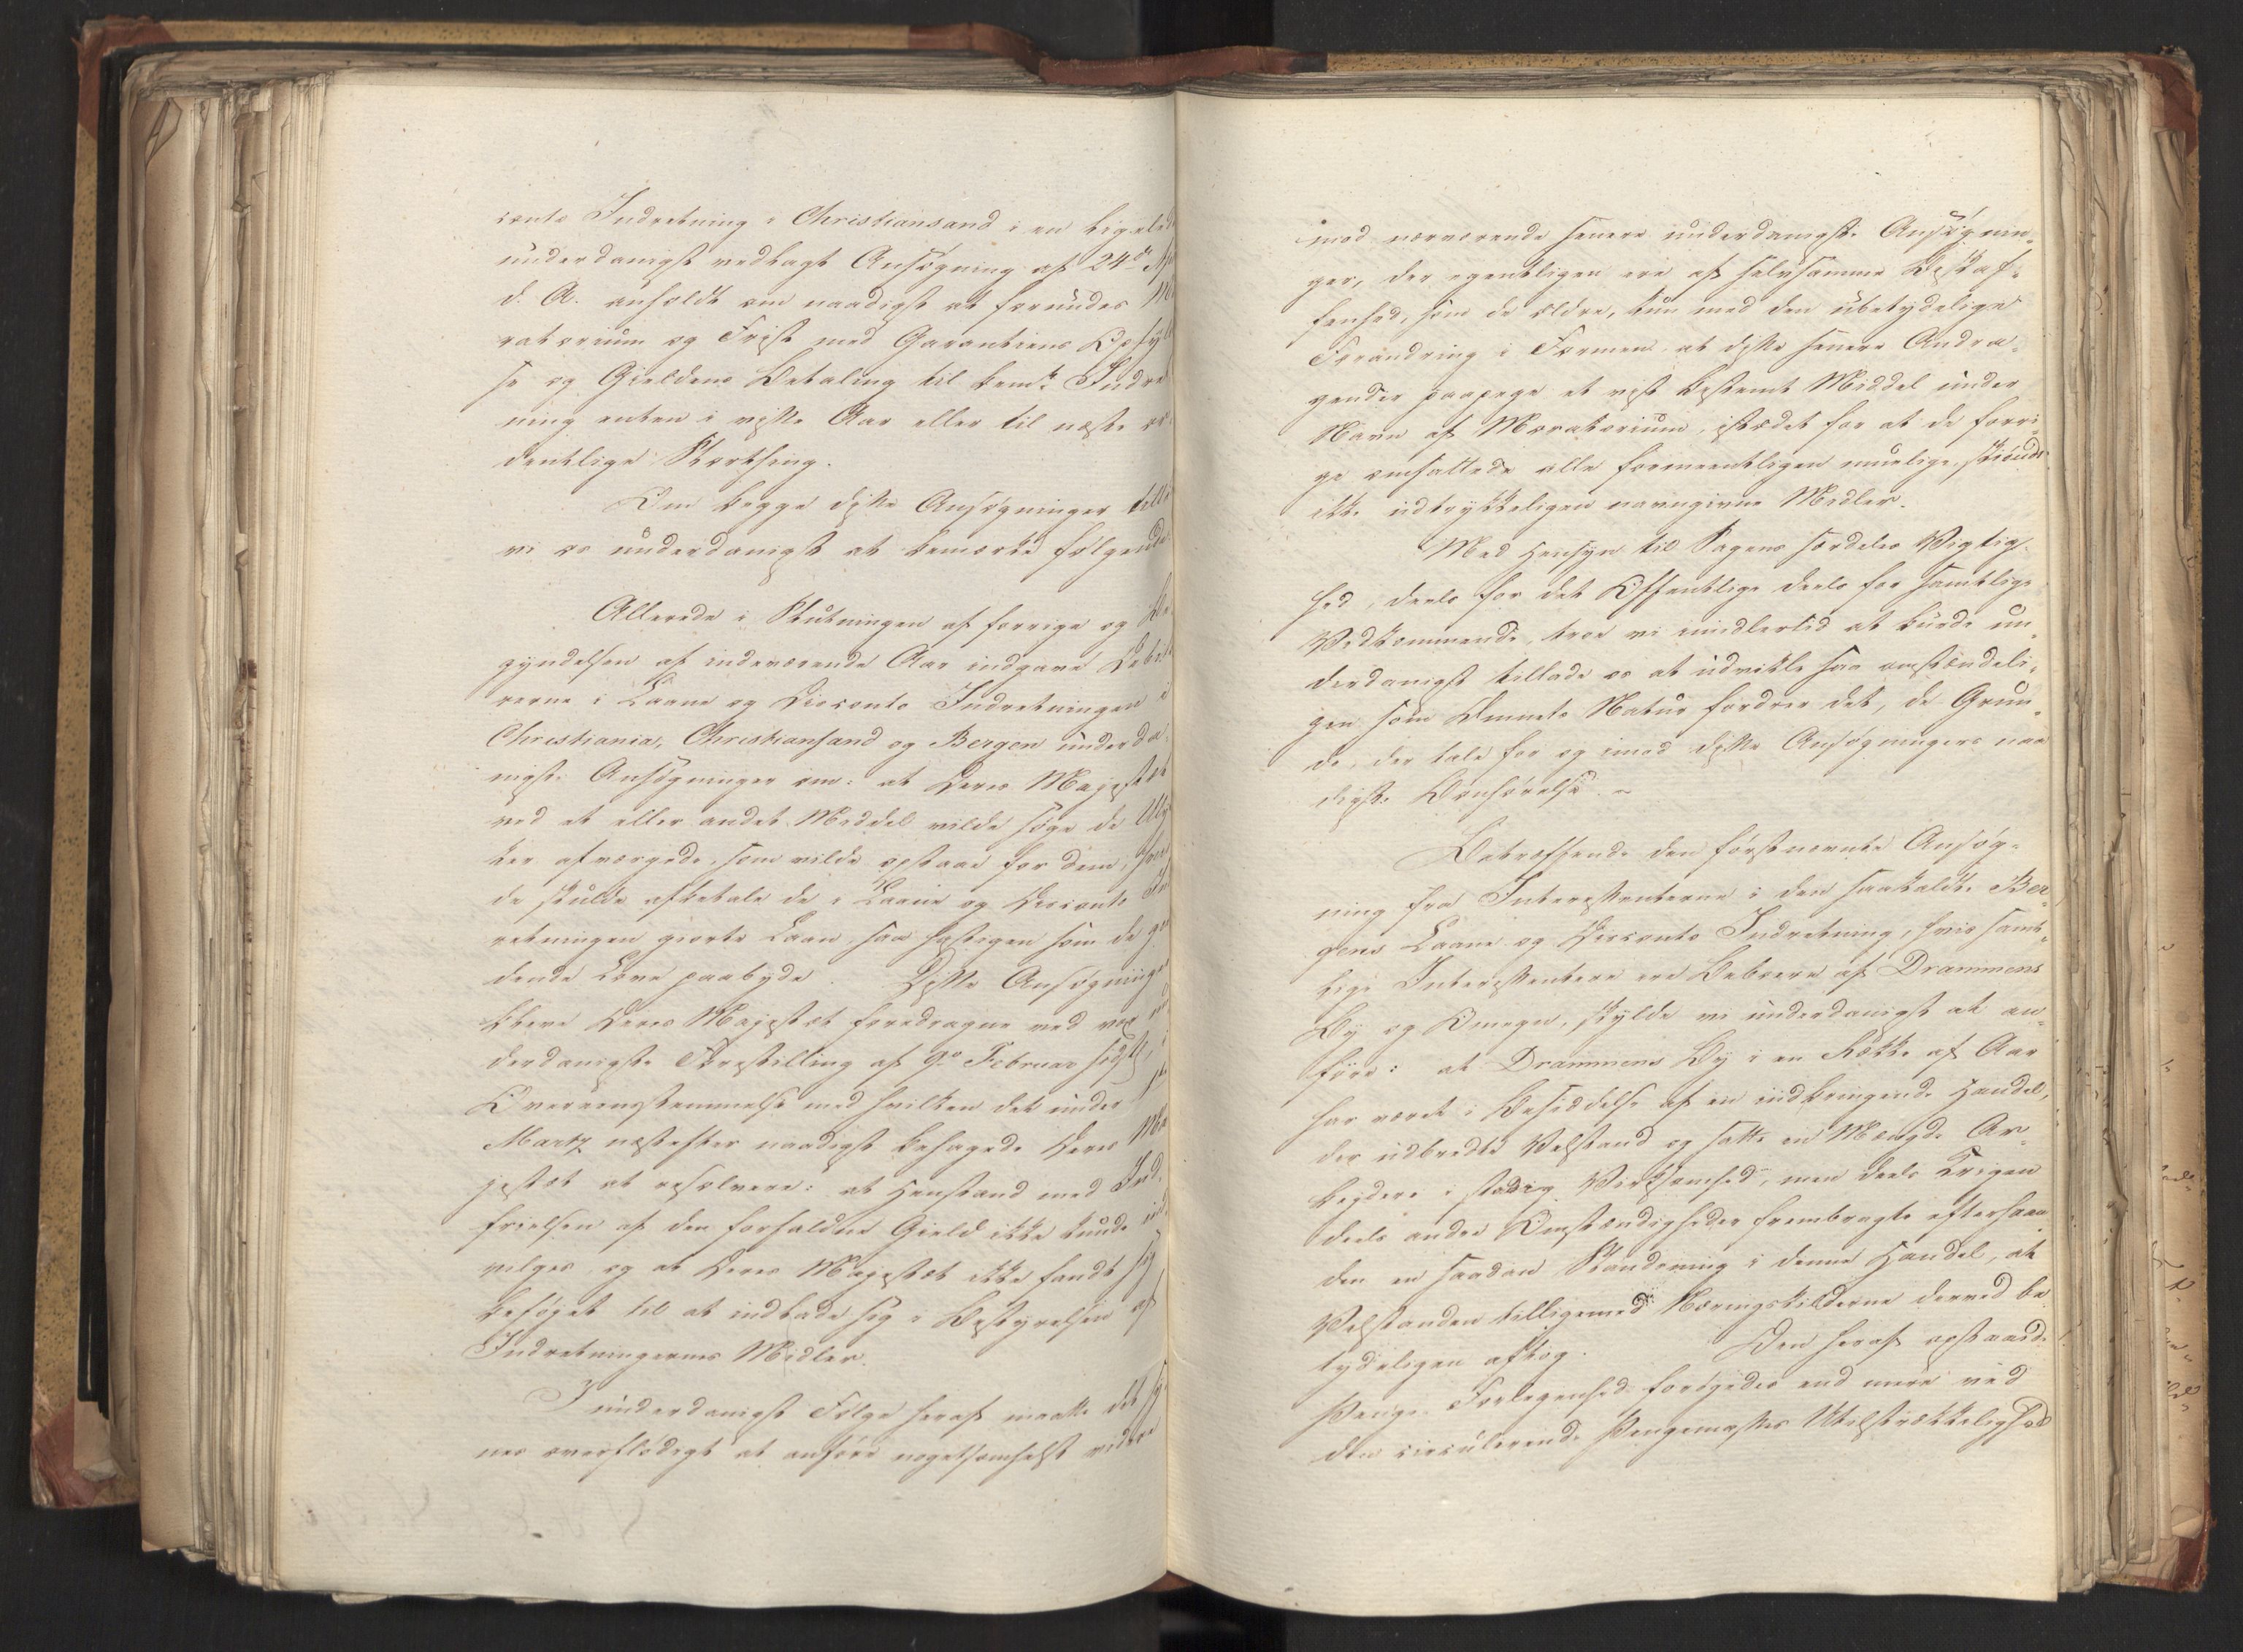 conto Indretning i Christiansand i en ligeled
underdanigst vedlagt Ansøgning af 24de
d. A. anholdt om naadigst at forundes Mo
ratorium og Frist med Garantiens Opfyl
se og Gieldens Betaling til bemte Indret
ning enten i visse Aar eller til næste or
dentlige Storthing.
Om begge disse Ansøgninger tilla
vi os underdanigst at bemærke følgende
Allerede i Slutningen af forrige og Be
gyndelsen af indeværende Aar indgave Debito
rerne i Laane og Disconto Indretningen i
Christiania, Christiansand og Bergen underda
nigste Ansøgninger om: at Deres Majestæt
ved et eller andet Middel vilde søge de Ulyk
ker afværgede, som vilde opstaae for dem, hvis
de skulde afbetale de i Laane og Disconto Ind
retningen giorte Laan saa hastigen som de giel
dende Love paabyde. Disse Ansøgninger
bleve Deres Majestæt foredragne ved vor un
derdanigste Forestilling af 9de Februar sidstl, i
Overeensstemmelse med hvilken det under
Martz næstefter naadigst behagede Deres Ma
jestæt at resolvere: at Henstand med Ind
frielsen af den forfaldne Gield ikke kunde
vilges, og at Deres Majestæt ikke fandt sig
beføyet til at indlade sig i Bestyrelsen af
Indretningernes Midler.
I underdanigst Følge heraf maatte det sy
nes overflødigt at anføre nogetsomhelst videre
imod nærværende senere underdanigste Ansøgnin-
ger, der egentligen ere af selvsamme Beskaf-
fenhed, som de ældre, kun med den ubetydelige
Forandring i Formen at disse senere Andra-
gender paapege et vist bestemt Middel under
Navn af Moratorium, istedet for at de forri-
ge omfattede alle formeentligen muelige, skiøndt
ikke udtrykkeligen navngivne Midler.
Med Hensyn til Sagens særdeles Vigtig-
hed, deels for det Offentlige deels for samtlige
Vedkommende, troe vi imidlertid at burde un-
derdanigst tillade os at udvikle saa omstændeli-
gen som Emnets Natur fordrer det, de Grun-
de, der tale for og imod disse Ansøgningers naa
digste Bønhørelse. -
Betræffende den førstnævnte Ansøg-
ning fra Interessenterne i den saakaldte Ber-
gens Laane og Disconto Indretning, hvis samt-
lige Interessentere ere Beboere af Drammens
By og Omegn, skylde vi underdanigst at an-
føre: at Drammens By i en Række af Aar
har været i Besiddelse af en indbringende Handel,
der udbredte Velstand og satte en Mængde Ar-
beydere i stadig Virksomhed, men deels Krigen
deels andre Omstændigheder frembragte efterhaan
den en saadan Standsning i denne Handel, at
Velstanden tilligemed Næringskilderne derved be
tydeligen aftog. Den heraf opstaaede
Penge Forlegenhed forøgedes end mere ved
den circulerende Pengemasses Utilstrækkelighed